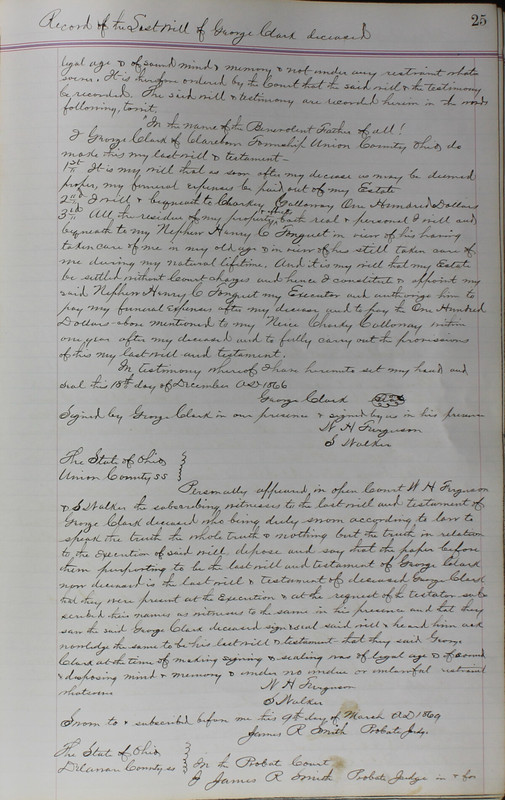 25
Record of the Last Will of George Clark deceased
legal age & of sound mind & memory & not under any restraint whats
oever. It is therefore ordered by the Court that the said will & the testimony
be recorded. The said will & testimony are recorded herein in the words
following, towit.
"In the name of the Benevolent Father of all!
I George Clark of Township Union County Ohio do
make this my last will & testament -
1st It is my will that as soon after my decease as may be deemed
proper, my funeral expenses be paid out of my Estate
2nd I will & bequeath to Calloway One Hundred Dollars
3rd All the residue of my property both real & personal I will and
bequeath to my Nephew Henry C in view of his having
taken care of me in my old age & in view of his still taken care of
me during my natural lifetime. And it is my will that my Estate
be settled without Court charges and hence I constitute & appoint my
said Nephew Henry C my Executor and authorize him to
pay my funeral expenses after my decease and to pay the One Hundred
Dollars above mentioned to my Niece Calloway within
one year after my deceased and to fully carry out the provisions
of this my last will and testament.
In testimony whereof I have hereunto set my hand and
seal this 18th day of December AD 1866
George Clark
Signed by George Clark in our presence & signed by us in his presence
N H Ferguson
S Walker
The State of Ohio }
Union County ss }
Personally appeared in open Court N H Ferguson
& S Walker the subscribing witnesses to the last will and testament of
George Clark deceased who being duly sworn according to law to
speak the truth the whole truth & nothing but the truth in relation
to the execution of said will depose and say that the paper before
them purporting to be the last will and testament of George Clark
now deceased is the last will & testament of deceased George Clark
that they were present at the execution & at the request of the testator sub
scribed their names as witness to the same in his presence and that they
saw the said George Clark deceased sign & seal said will & heard him ack
nowledge the same to be his last will & testament that they said George
Clark at the time of making signing & sealing was of legal age & of sound
& disposing mind & memory & under no undue or unlawful restraint
whatsoever
N H Ferguson
S Walker
Sworn to & subscribed before me this 9th day of March AD 1869
James R Smith Probate Judge
The State of Ohio }
Delaware County ss } In the Probate Court
I James R Smith Probate Judge in & for